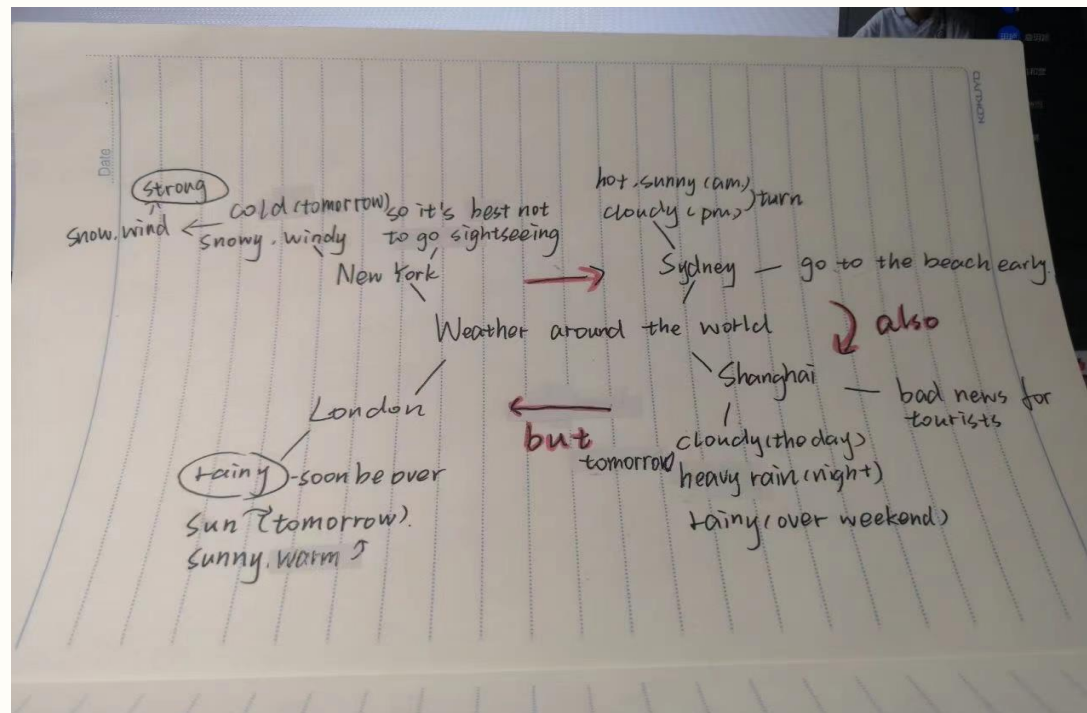 Date
strong
snow, wind
cold (tomorrow)
snowy, windy
so it's best not
to go sightseeing
New York
hot, sunny (am)
cloudy (pm)
turn
Sydney
go to the beach early.
Weather around the world
also
Shanghai
bad news for
tourists
cloudy (the day)
tomorrow
heavy rain (night)
rainy (over weekend)
but
London
rainy - soon be over
sun (tomorrow).
sunny, warm